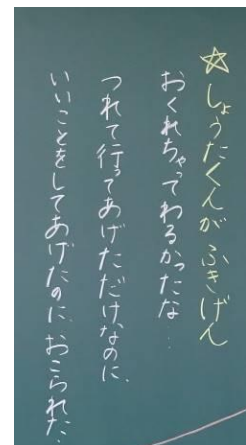 ☆しょうたくんがふきげん
おくれちゃってわるかったな…
つれて行ってあげただけなのに、
いいことをしてあげたのに、おこられた、